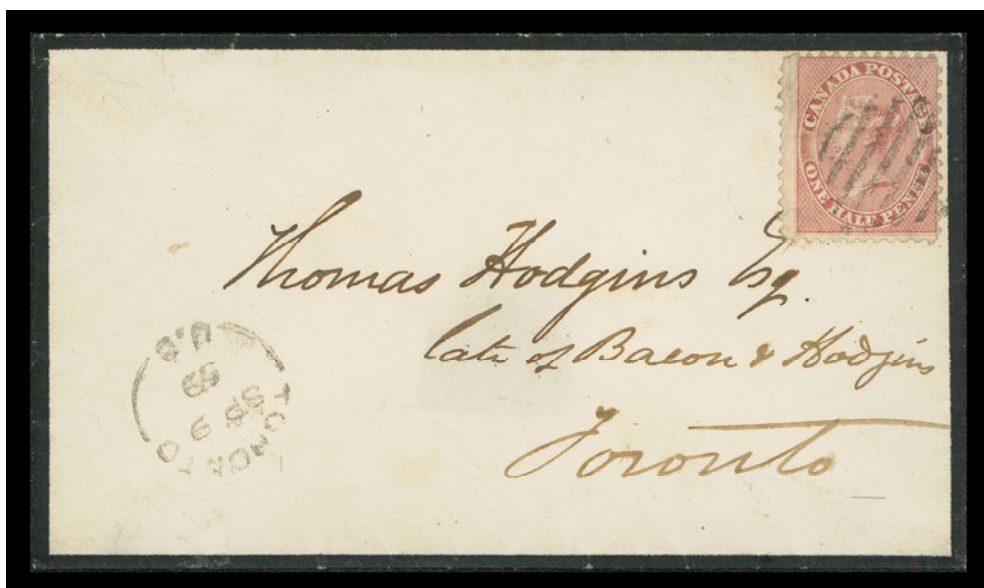 CANADA POSTAGE
ONE HALF PENNY
Thomas Hodgins Esq.
late of Bacon & Hodgins
Toronto
TORONTO
U.C
SP
9
59